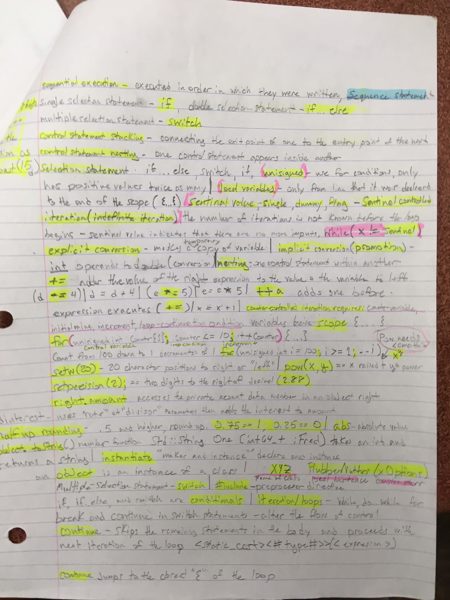 sequential execution - executed in order in which they were written, Sequence statement
single selection statement - if double selection statement - if...else
multiple selection statement - switch
control statement stacking - connecting the exit point of one to the entry point of the next
control statement nesting - one control statement appears inside another
Selection statement if...else switch, if, unsigned - use for conditions, only
has positive values twice as many local variables - only from line that it was declared
to the end of the scope {...} Sentinel value, signal, dummy, flag - Sentinel controlled
iteration (indefinite iteration) the number of iterations is not known before the loop
begins - sentinel value indicates that there are no more inputs, while (x != sentinel)
explicit conversion - makes a temporary copy of variable implicit conversion (promotion) -
int operands to double (conversion) nesting - one control statement within another
+= adds the value of the right expression to the value of the variable to left
(d += 4) d = d + 4 (e *= 5) e = e * 5 ++a adds one before
expression executes x = x + 1 counter-controlled iteration requires control variable,
initial value, increment, loop-continuation condition variables being scope {...}
for (unsigned int counter{1}; counter <= 10; ++counter) {...}
control variable
count from 100 down to 1 decrements of 1 for (unsigned int i = 100; i >= 1; --i)
pow needs <cmath>
setw(20) - 20 character position to right or "left" pow(x, y) = x raised to y power
setprecision(2); = two digits to the right of decimal (2.88)
right. amount accesses the private account data member in an object right
interest uses "rate" and "divisor" parameters then adds the interest to amount
half up rounding .5 and higher, round up. 0.75 = 1 0.25 = 0 abs - absolute value
to_string() number function std::string
returns a string instantiate "make an instance" declare one instance
an object is an instance of a class XYZ
Multiple-Selection statement - switch #include - preprocessor directive
if, if else, and switch are conditionals iteration/loops - while, do while for
break and continue in switch statements - alter the flow of control
continue - skips the remaining statements in the body and proceeds with
next iteration of the loop
continue jumps to the closed "}" of the loop